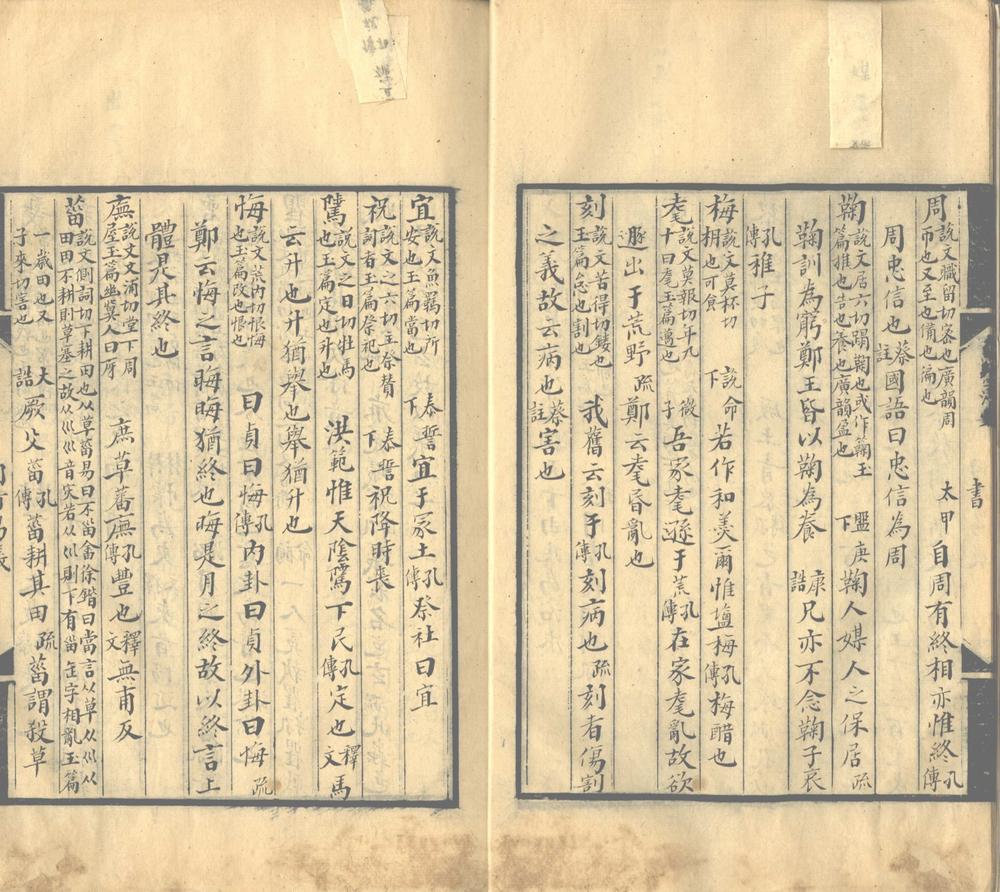 周說文職留切密也廣韻周帀也又至也備也徧也 太甲 自周有終相亦惟終孔傳
周忠信也蔡註國語曰忠信為周
鞠說文居六切蹋鞠也或作𥷚玉篇推也告也養也廣韻盈也 盤庚下 鞠人媒人之保居疏
鞠訓為窮鄭王皆以鞠為養 康誥 兄亦不念鞠子哀
孔傳稚子
梅說文莫杯切枏也可食 說命下 若作和羹爾惟塩梅孔傳梅醋也
耄說文莫報切年九十曰耄玉篇邁也 微子 吾家耄遜于荒孔傳在家耄亂故欲
遯出于荒野疏鄭云耄昏亂也
刻說文苦得切鏤也玉篇怠也割也 我舊云刻子孔傳刻病也疏刻者傷割
之義故云病也蔡註害也
書
宜說文魚羈切所安也玉篇當也 泰誓下 宜于冢土孔傳祭社曰宜
祝說文之六切主祭贊詞者玉篇祭祀也 泰誓下 祝降時喪
騭說文之日切牡馬也玉篇定也升也 洪範惟天陰騭下民孔傳定也釋文馬
云升也升猶舉也舉猶升也
悔說文荒內切恨悔也玉篇改也恨也 曰貞曰悔孔傳內卦曰貞外卦曰悔疏
鄭云悔之言晦晦猶終也晦是月之終故以終言上
體是其終也
廡說文文甫切堂下周屋玉篇幽冀人曰㡻 庶草蕃廡孔傳豐也釋文無甫反
菑說文側詞切不耕田也从草甾易曰不菑畬徐鍇曰當言从草从巛从田田不耕則草塞之故从巛巛音灾若从甾則下有甾缶字相亂玉篇
一歲田也又子來切害也 大誥 厥父菑孔傳菑耕其田疏菑謂殺草